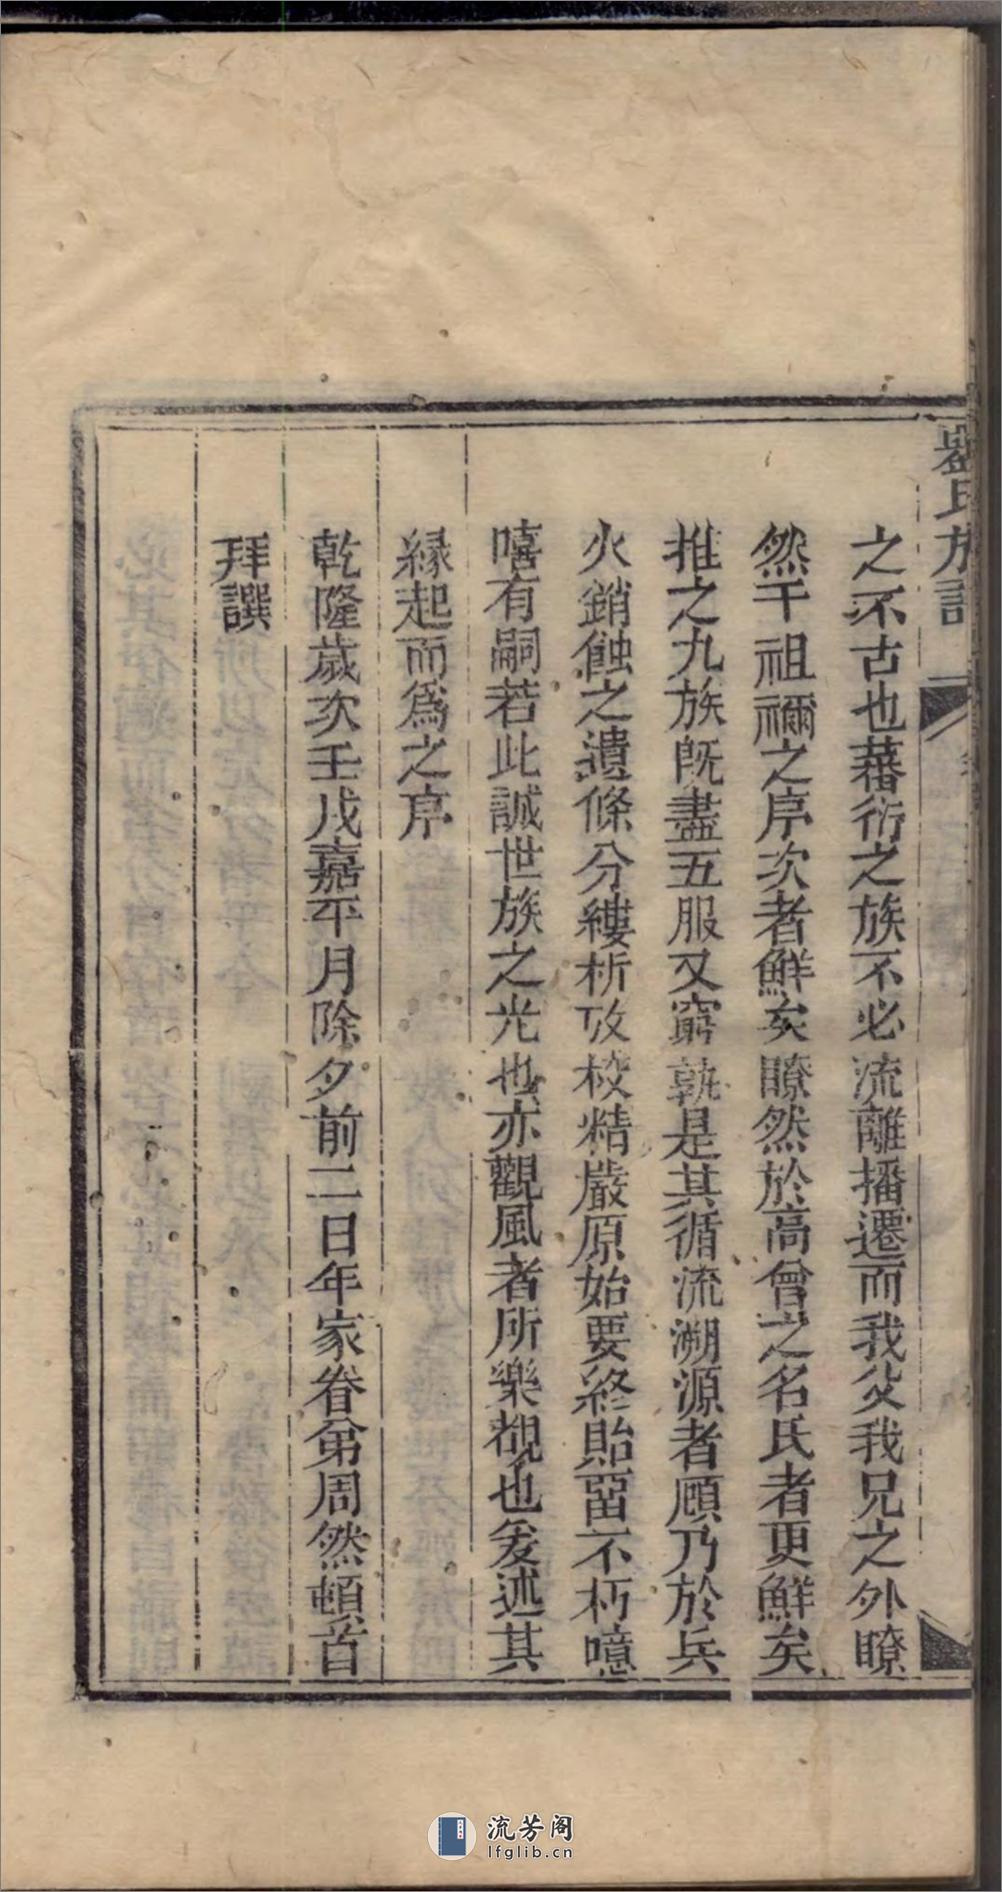 之不古也蕃衍之族不必流離播遷而我父我兄之外瞭
然于祖禰之序次者鮮矣瞭然於高曾之名氏者更鮮矣
推之九族旣盡五服又窮孰是其循流溯源者顧乃於兵
火銷蝕之遺條分縷析攷校精嚴原始要終貽畱不朽噫
嘻有嗣若此誠世族之光也亦觀風者所樂覩也爰述其
緣起而爲之序
乾隆歲次壬戌嘉平月除夕前二日年家眷弟周然頓首
拜譔
氏族譜
流芳阁
lfglib.cn